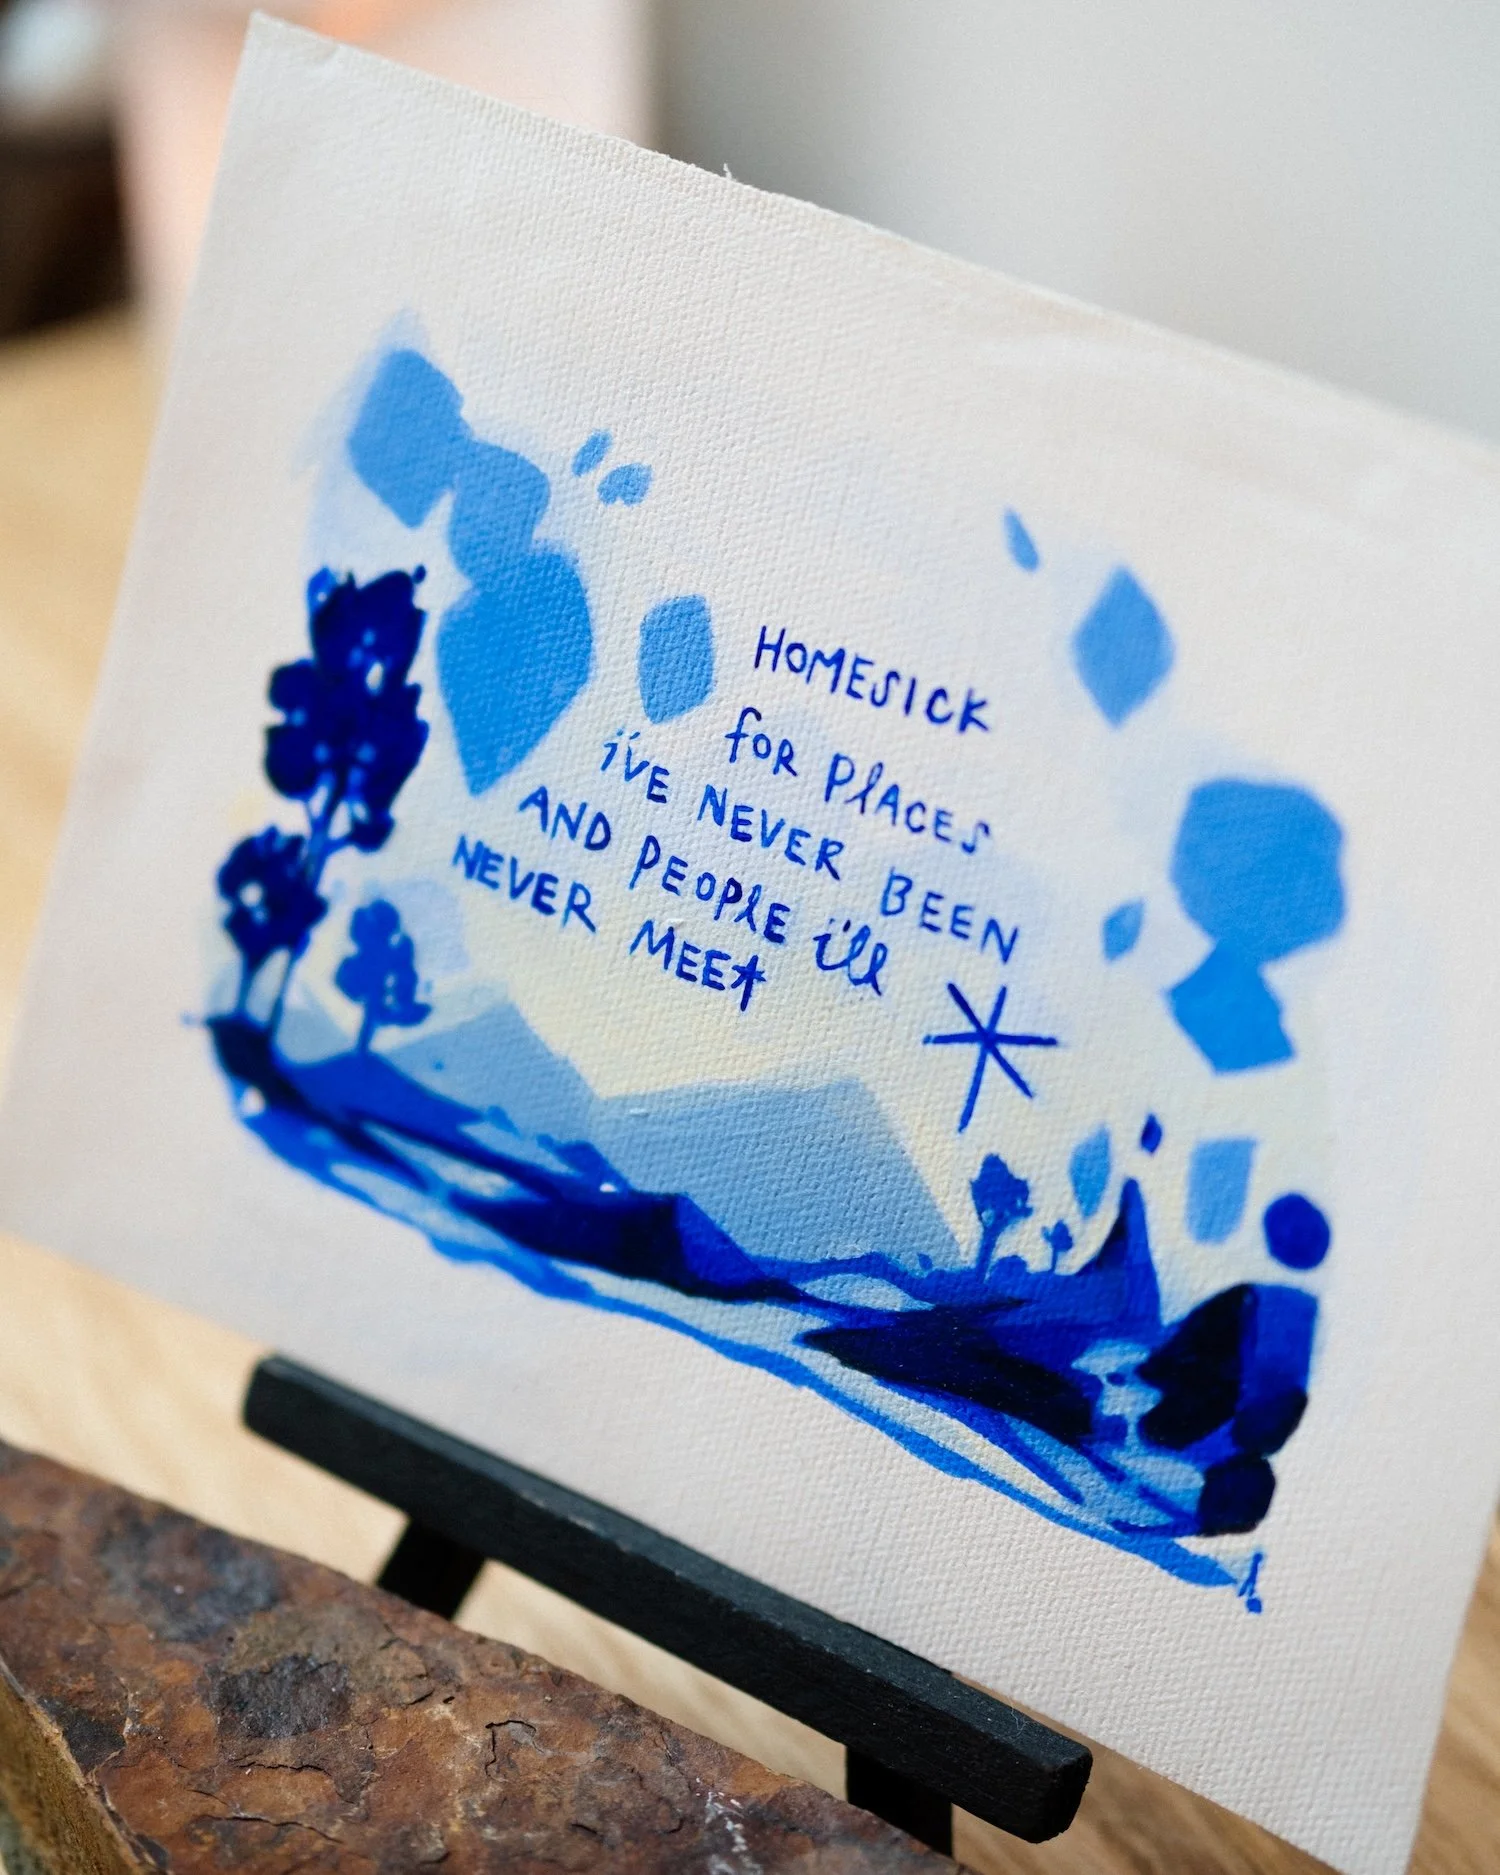 HOMESICK
for PlACES
i've NEVER BEEN
AND PEOPlE i'll
NEVER MEET